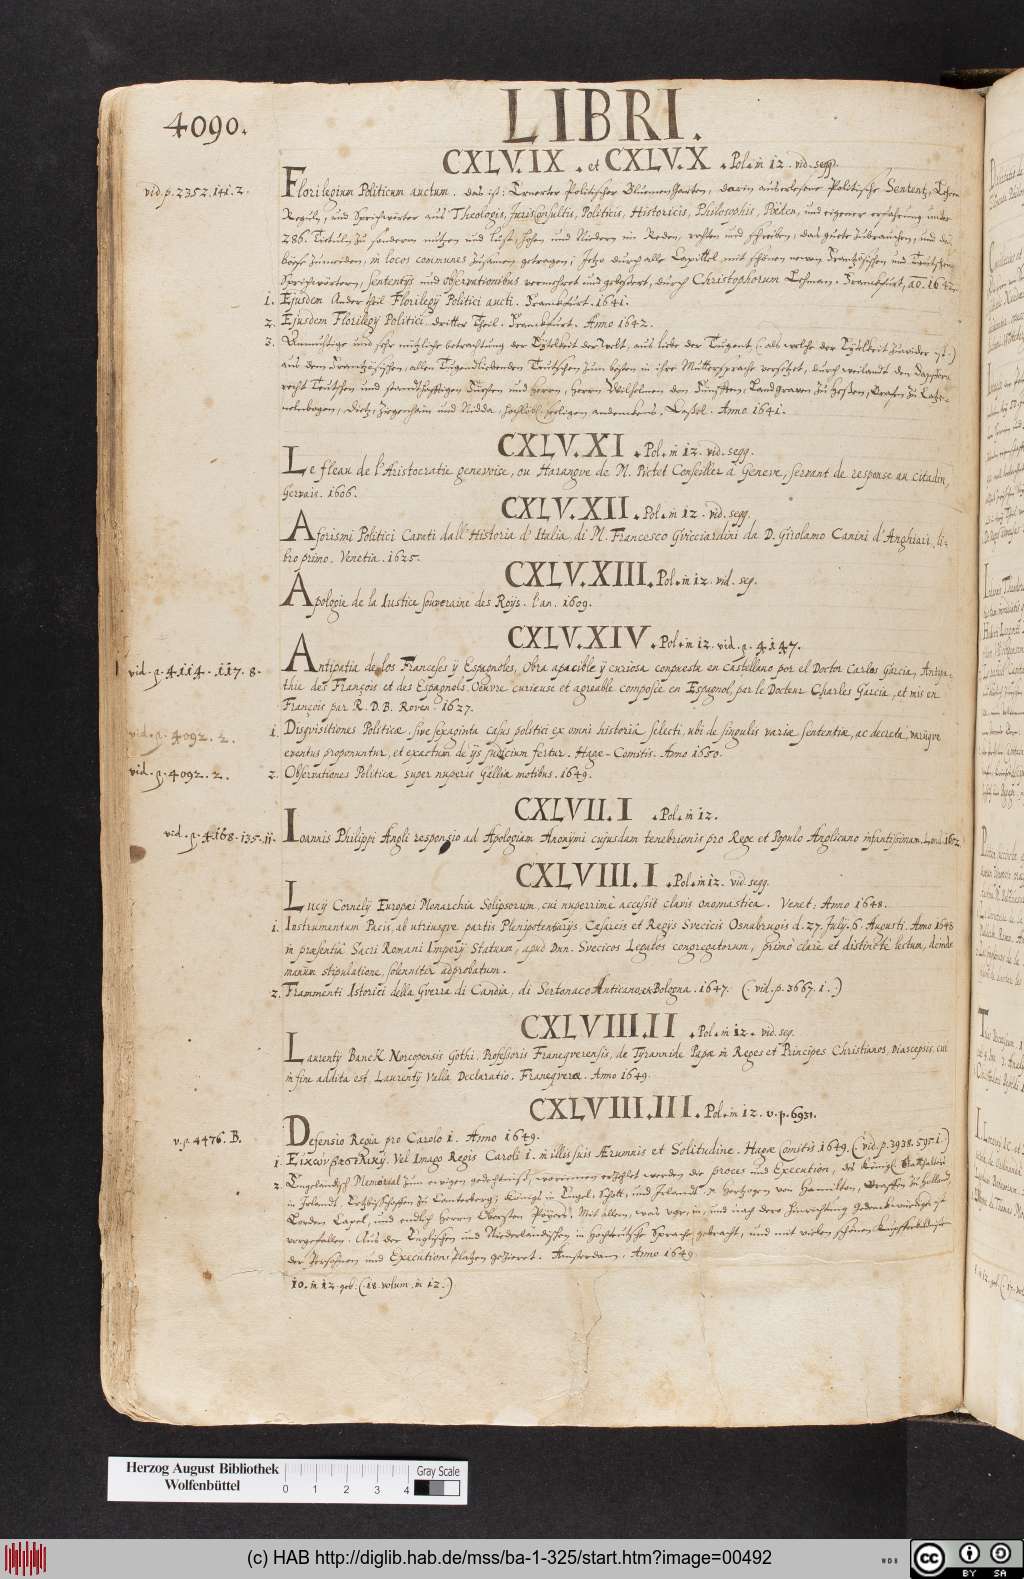 4090.
LIBRI.
CXLV.IX . et CXLV.X . Pol. in 12. vid. segg.
vid. p. 2352. 141. 2.
Florilegium Politicum auctum. das ist: Ernewter Politischer Bluemen Garten, darin auserlesene Politische Sententz, Lehren
Reguln, und Sprichwörter aus Theologis, Jurisconsultis, Politicis, Historicis, Philosophis, Poëten, und eigener erfahrung unter
286. Tituln zu sonderm nutzen und lust, hohen und Niedern im Reden, rahten und schreiben, das guete zubrauchen, und das
böse zumeiden, in locos communes zusamen getragen; Jetzo durch alle Capittel mit schönen newen Frantzösischen und Teutschen
Sprichwörtern, sententijs und observationibus vermehret und gebessert, durch Christophorum Lehman. Franckfurt, ao. 1642.
1. Ejusdem Ander theil Florilegij Politici aucti. Franckfurt. 1641.
2. Ejusdem Florilegij Politici dritter Theil. Franckfurt. Anno 1642.
3. Anmuhtige und sehr nutzliche betrachtung der Eytelkeit der Welt, aus liebe der Tugent, (: als welche der Eytelkeit zuwider ist :)
aus dem Frantzösischen, allen Tugendliebenden Teutschen zum besten in ihre Muttersprache versetzet, durch weilandt den
recht Teutschen und standthafftigen Fursten und Herrn, Herrn Wilhelmen den Funfften, Landgraven zu Hessen, Grafen zu Catze-
nelenbogen, Dietz, Ziegenhain und Nidda, hochlöbl. seeligen andenckens. Cassel. Anno 1641.
CXLV.XI . Pol. in 12. vid. segg.
Le fleau de l'Aristocratie genevoise, ou Harangve de M. Pictet Conseiller à Geneve, servant de response au citadin,
Gervais. 1606.
CXLV.XII . Pol. in 12. vid. segg.
Aforismi Politici Cavati dall' Historia d' Italia, di M. Francesco Gvicciardini da D. Girolamo Canini d' Anghiari, li-
bro primo. Venetia. 1625.
CXLV.XIII. Pol. in 12. vid. seg.
Apologie de la Iustice souveraine des Roys. l'an. 1609.
CXLV.XIV. Pol. in 12. vid. p. 4147.
vid. p. 4114. 117. 8.
Antipatia de los Franceses ÿ Espagnoles, Obra apacible ÿ curiosa compuesta en Castellano por el Doctor Carlos Garcia, Antipa-
thie des François et des Espagnols. Oeuvre curieuse et agreable composée en Espagnol par le Docteur Charles Garcia, et mis en
François par R. D. B. Roven. 1627.
vid. p. 4092. 2.
1. Disqvisitiones Politicæ, sive sexaginta casus politici ex omni historia selecti, ubi de singulis variæ sententiæ, ac decreta, variiqve
eventus proponuntur, et exactum de ijs judicium fertur. Hagæ-Comitis. Anno 1650.
vid. p. 4092. 2.
2. Observationes Politicæ super nuperis Galliæ motibus. 1649.
CXLVII.I . Pol. in 12.
vid. p. 4168. 135. 11.
Ioannis Philippi Angli responsio ad Apologiam Anonymi cujusdam tenebrionis pro Rege et Populo Anglicano infantissimam. Lond. 1652
CXLVIII.I . Pol. in 12. vid. segg.
Lucij Cornelij Europæi Monarchia Solipsorum, cui nuperrime accessit clavis onomastica. Venet. Anno 1648.
1. Instrumentum Pacis, ab utriusqve partis Plenipotentiarijs Cæsareis et Regijs Svecicis Osnabrugis d. 27. Julij. 6. Augusti. Anno 1648
in præsentia Sacri Romani Imperij Statuum, apud Dnn. Svecicos Legatos congregatorum, primò clarè et distinctè lectum, deinde
manum stipulatione, solenniter adprobatum.
2. Frammenti Istorici della Gverra di Candia, di Sertonaco Anticano. Bologna. 1647. (: vid. p. 3667. 1. :)
CXLVIII.II . Pol. in 12. vid. seg.
Laurentij Banck Norcopensis Gothi, Professoris Franeqverensis, de Tÿrannide Papæ in Reges et Principes Christianos Diascepsis, cui
in fine addita est, Laurentij Vallæ Declaratio. Franeqveræ. Anno 1649.
CXLVIII.III. Pol. in 12. v. p. 6931.
v. p. 4476. B.
Defensio Regia pro Carolo I. Anno 1649.
1. Εἰκὼν βασιλικὴ. Vel Imago Regis Caroli I. in illis suis Ærumnis et Solitudine. Hagæ Comitis 1649. (: vid. p. 3938. 595. 1. :)
2. Engelandisch Memorial zum ewigen gedechtnuß, worinnen erzehlet werden die proces und Execution, des Königl. Statthalters
in Irlandt, Ertzbischoffen zu Canterberg, Königs in Engel, Schott, und Irlandt, Hertzogen von Hamilton, Graffen zu Holland,
Lorden Capel, und endlich Herrn Obersten Poyers, Mit allem, was vor, in, und nach dero hinrichtung Gedenckwürdigs ist
vorgefallen. Aus der Englischen und Niederländischen in Hochteutsche Sprache gebracht, und mit vielen schönen Kupfferbildnissen
der Personen und Executions Plätzen gezieret. Amsterdam. Anno 1649.
10. in 12. geb. (: 18. volum. in 12. :)
Herzog August Bibliothek
Wolfenbüttel
0 1 2 3 4
Gray Scale
(c) HAB http://diglib.hab.de/mss/ba-1-325/start.htm?image=00492
WDB
cc BY SA